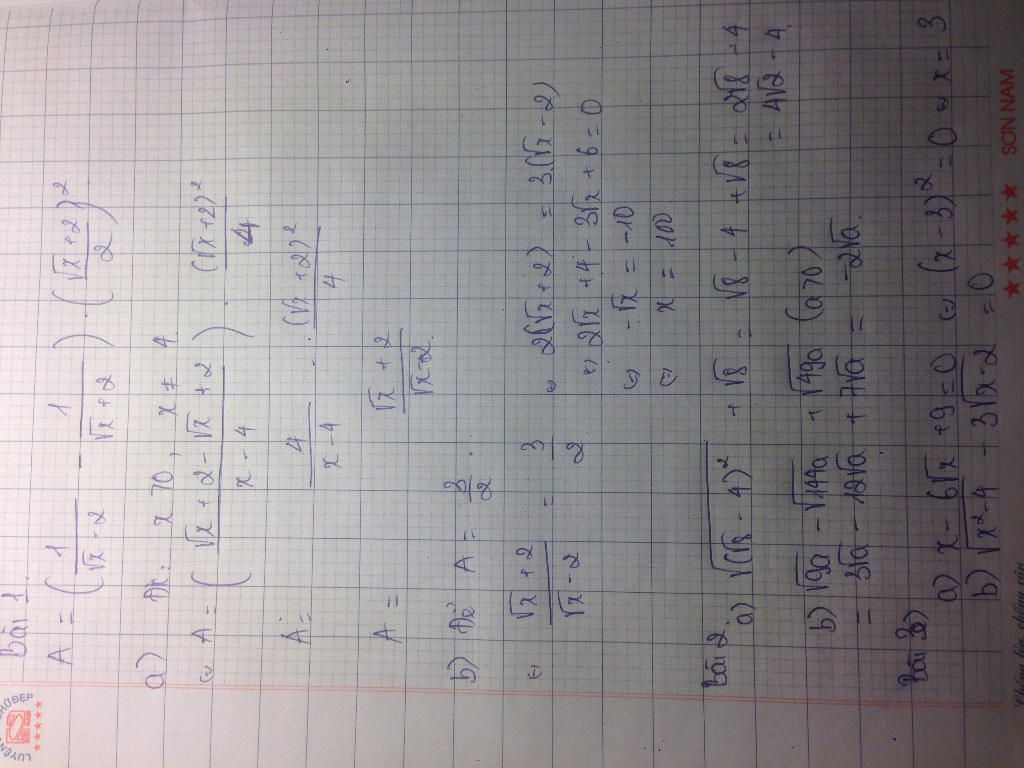 Bài 1.
A = ( 1/(√x - 2) - 1/(√x + 2) ) . ( (√x + 2)/2 )²
a) Đk: x > 0, x ≠ 4.
⇔ A = ( (√x + 2 - √x + 2)/(x - 4) ) . (√x + 2)²/4
A = 4/(x - 4) . (√x + 2)²/4
A = (√x + 2)/(√x - 2).
b) Để A = 3/2.
⇔ (√x + 2)/(√x - 2) = 3/2 ⇔ 2(√x + 2) = 3.(√x - 2)
⇔ 2√x + 4 - 3√x + 6 = 0
⇔ -√x = -10
⇔ x = 100
Bài 2.
a) √((√8 - 4)²) + √8 = √8 - 4 + √8 = 2√8 - 4
= 4√2 - 4.
b) √9a - √144a + √49a (a > 0)
= 3√a - 12√a + 7√a = -2√a.
Bài 3)
a) x - 6√x + 9 = 0 ⇔ (x - 3)² = 0 ⇔ x = 3
b) √(x² - 4) - 3√x - 2 = 0
SƠN NAM
LUYỆN